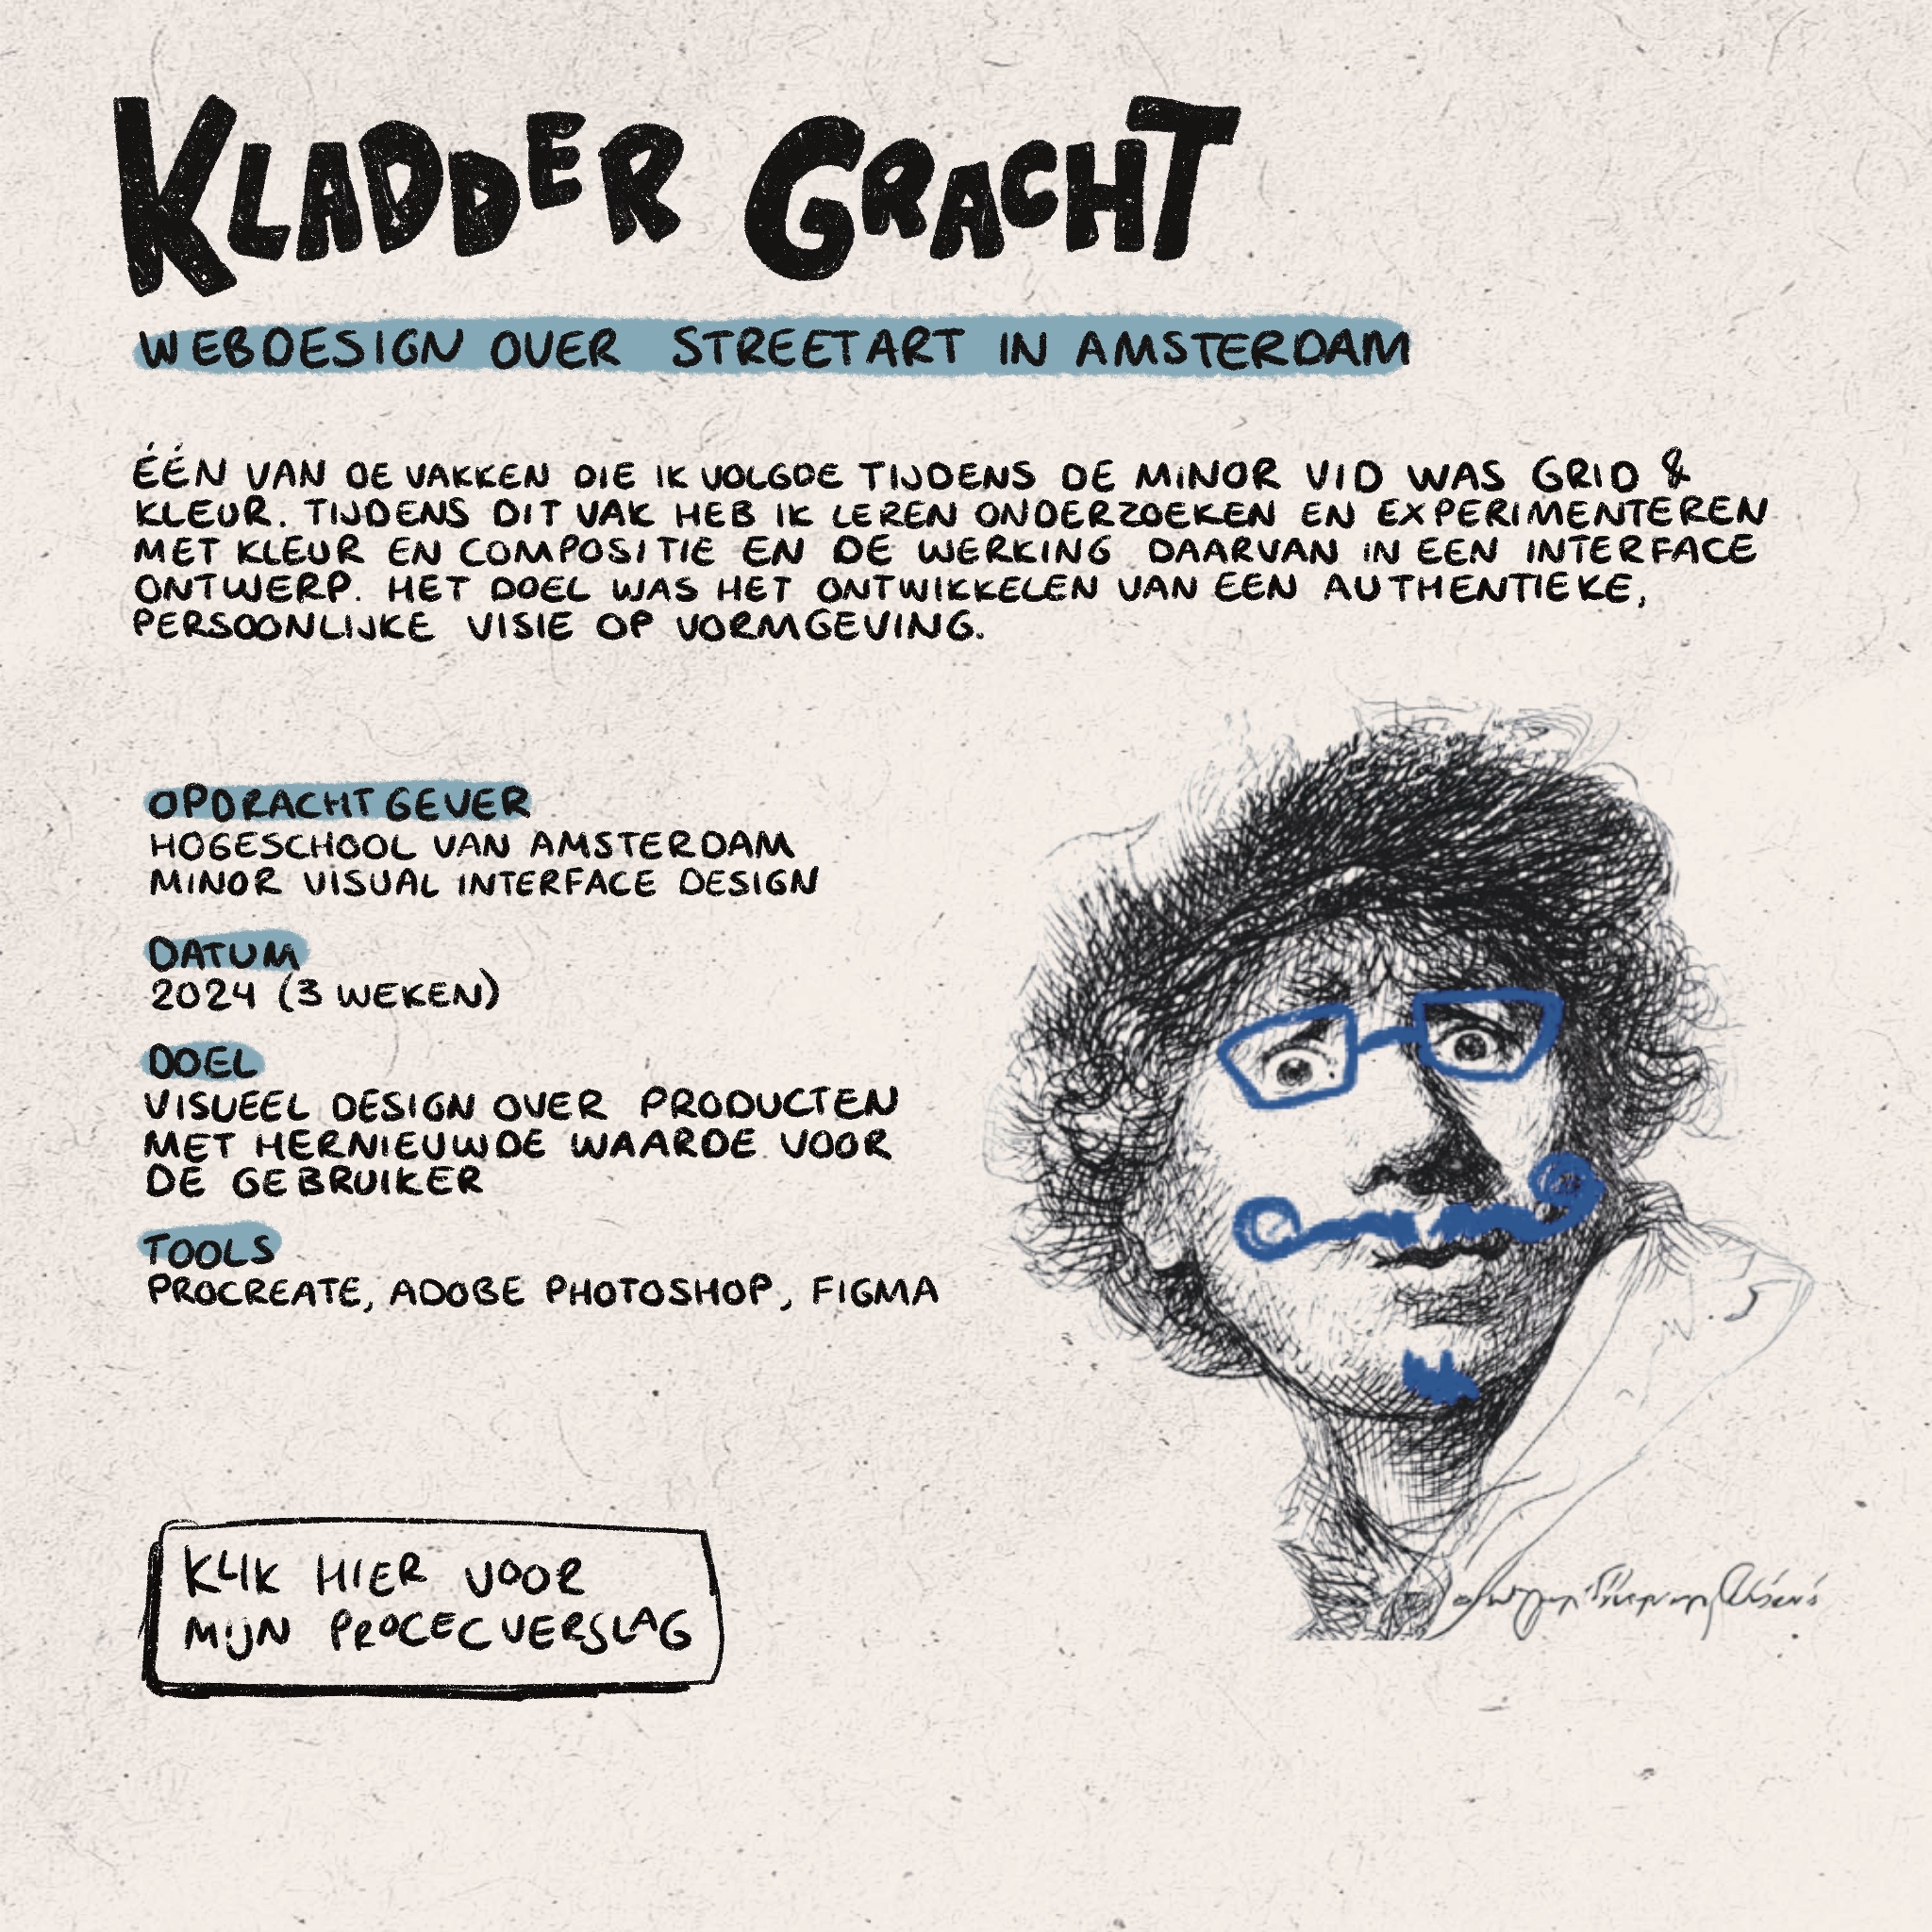 KLADDER GRACHT
WEBDESIGN OVER STREETART IN AMSTERDAM
ÉÉN VAN DE VAKKEN DIE IK VOLGDE TIJDENS DE MINOR VID WAS GRID &
KLEUR. TIJDENS DIT VAK HEB IK LEREN ONDERZOEKEN EN EXPERIMENTEREN
MET KLEUR EN COMPOSITIE EN DE WERKING DAARVAN IN EEN INTERFACE
ONTWERP. HET DOEL WAS HET ONTWIKKELEN VAN EEN AUTHENTIEKE,
PERSOONLIJKE VISIE OP VORMGEVING.
OPDRACHTGEVER
HOGESCHOOL VAN AMSTERDAM
MINOR VISUAL INTERFACE DESIGN
DATUM
2024 (3 WEKEN)
DOEL
VISUEEL DESIGN OVER PRODUCTEN
MET HERNIEUWDE WAARDE VOOR
DE GEBRUIKER
TOOLS
PROCREATE, ADOBE PHOTOSHOP, FIGMA
KLIK HIER VOOR
MIJN PROCECVERSLAG